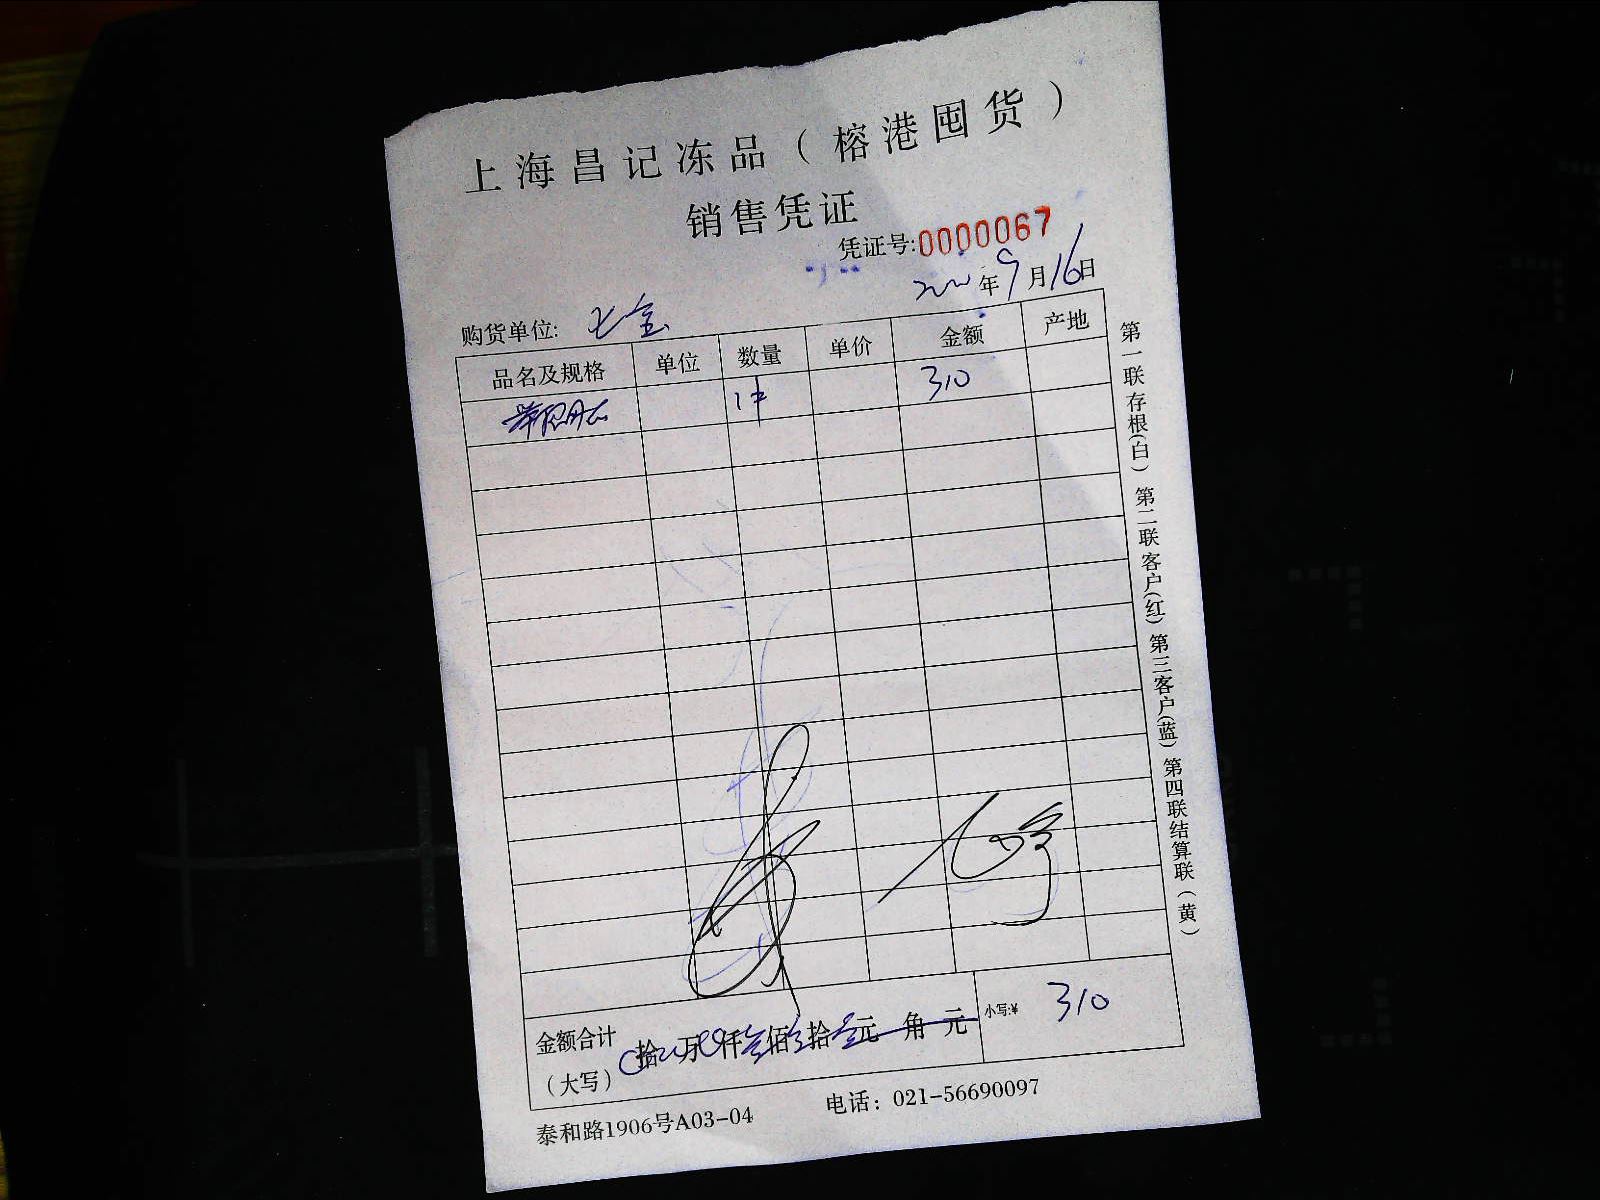 上海昌记冻品（榕港囤货）
销售凭证
凭证号:0000067
年9月16日
购货单位: 七宝
品名及规格 单位 数量 单价 金额 产地
1件 310
金额合计（大写） 拾 万 仟 佰 拾 元 角 元 小写:¥ 310
泰和路1906号A03-04 电话：021-56690097
第一联存根(白) 第二联客户(红) 第三客户(蓝) 第四联结算联(黄)